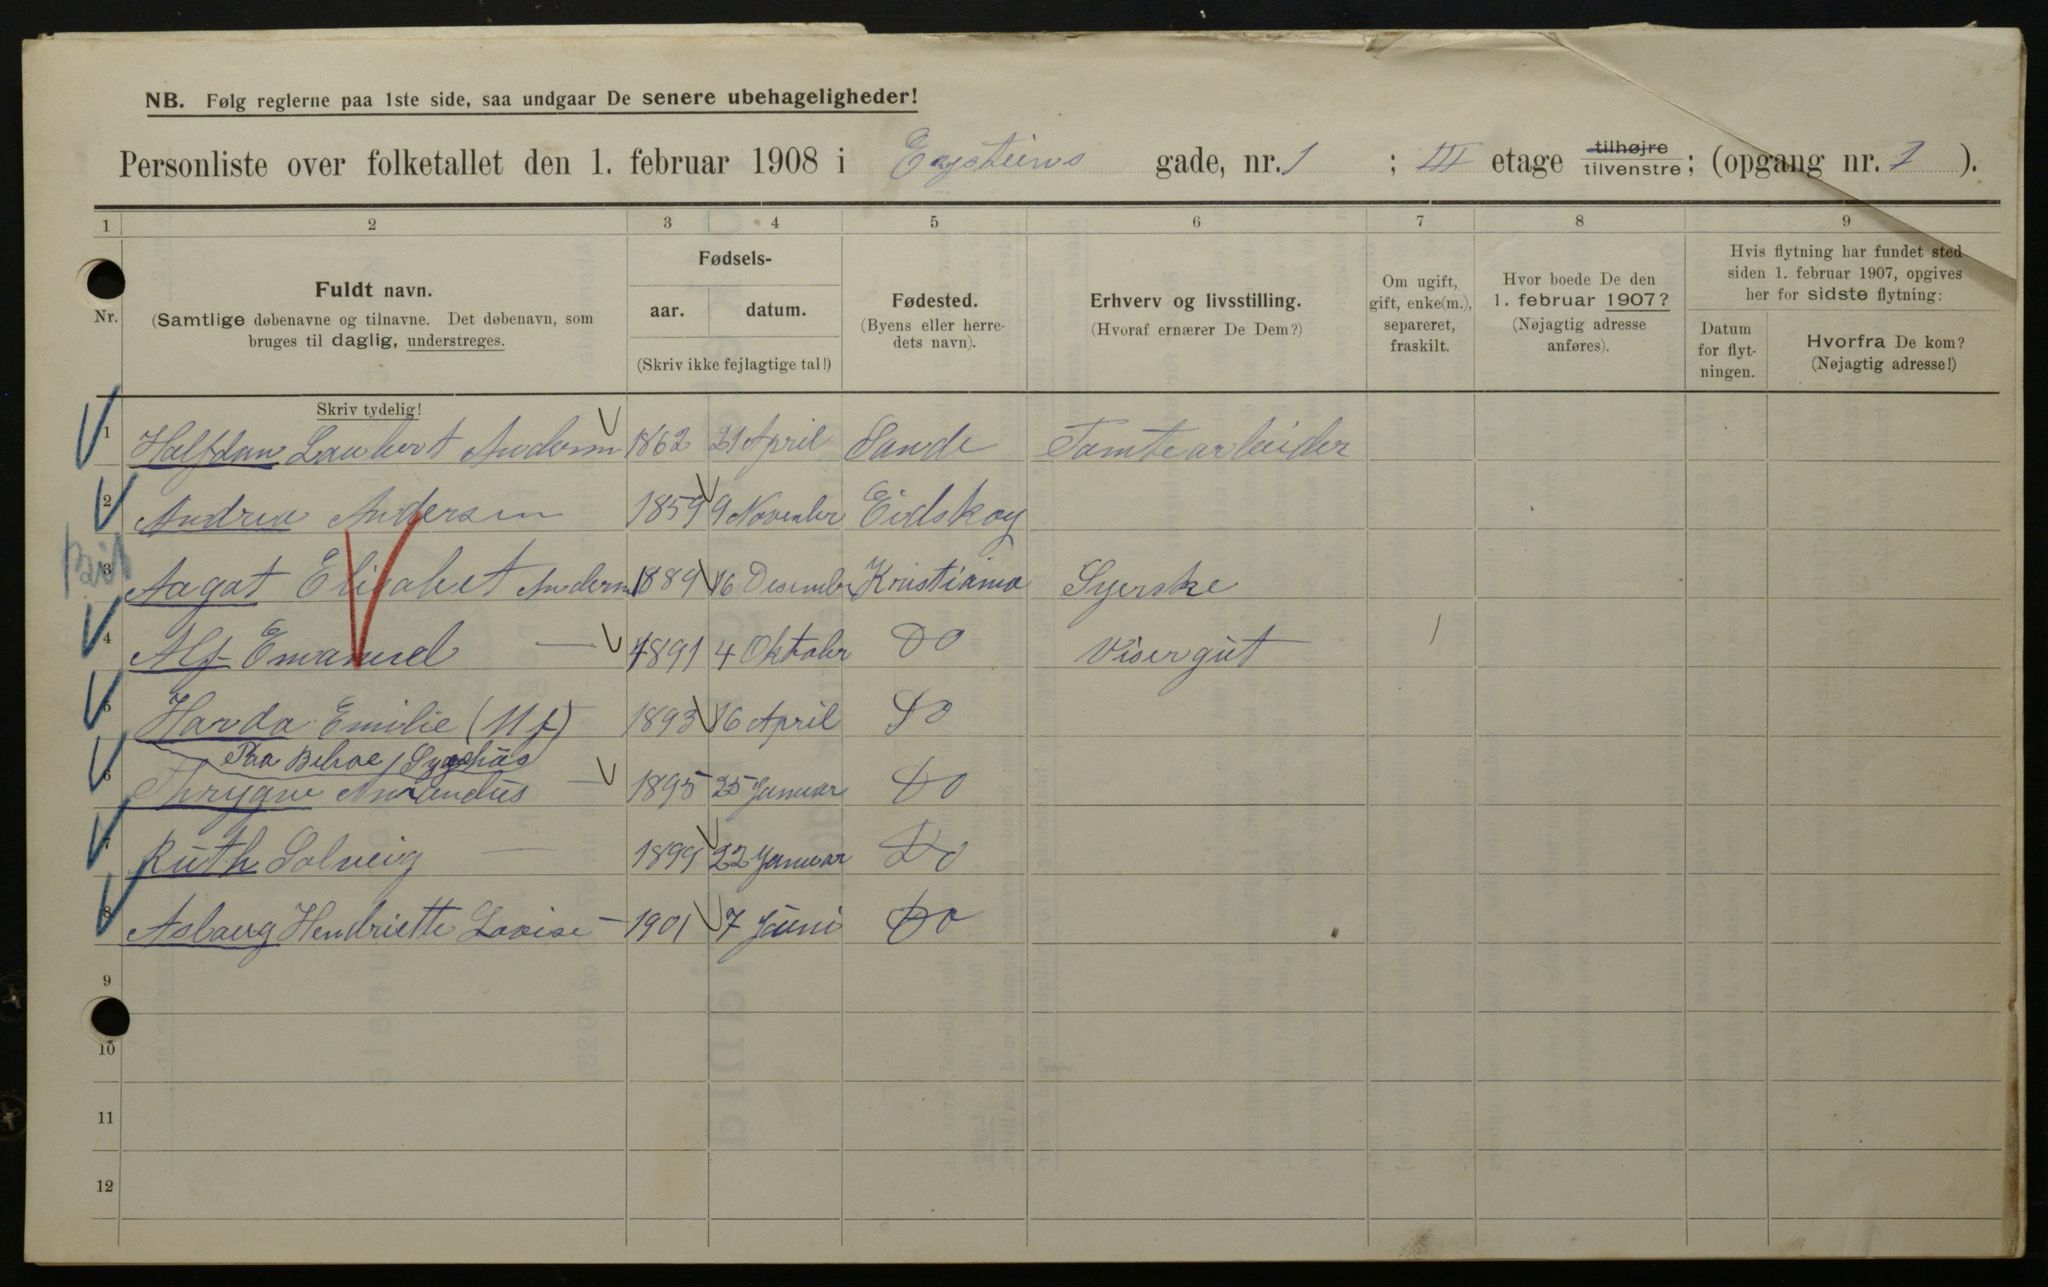 NB. Følg reglerne paa 1ste side, saa undgaar De senere ubehageligheder!
Personliste over folketallet den 1. februar 1908 i Eysteins gade, nr. 1 ; III etage tilhøjre tilvenstre; (opgang nr. 1 ).
1 2 3 4 5 6 7 8 9
Nr.
Fuldt navn.
(Samtlige døbenavne og tilnavne. Det døbenavn, som
bruges til daglig, understreges.
Skriv tydelig!
Fødsels-
aar. datum.
(Skriv ikke fejlagtige tal!)
Fødested.
(Byens eller herre-
dets navn).
Erhverv og livsstilling.
(Hvoraf ernærer De Dem?)
Om ugift,
gift, enke(m.),
separeret,
fraskilt.
Hvor boede De den
1. februar 1907?
(Nøjagtig adresse
anføres).
Hvis flytning har fundet sted
siden 1. februar 1907, opgives
her for sidste flytning:
Datum
for flyt-
ningen.
Hvorfra De kom?
(Nøjagtig adresse!)
1 Halfdan Lauhert Andersen 1862 21 April Sande Tomtearbeider
2 Andrea Andersen 1859 9 November Eidskog
3 Aagot Elisabet Andersen 1889 16 Desember Kristiania Syerske
4 Alf Emanuel — 1891 4 Oktober Do Visergut
5 Harda Emilie — 1893 16 April Do
Paa Sygehus
6 Thrygve Amandus — 1895 25 Januar Do
7 Ruth Solveig — 1899 22 Januar Do
8 Asbaug Hendriette Lovise — 1901 7 Juni Do
9
10
11
12